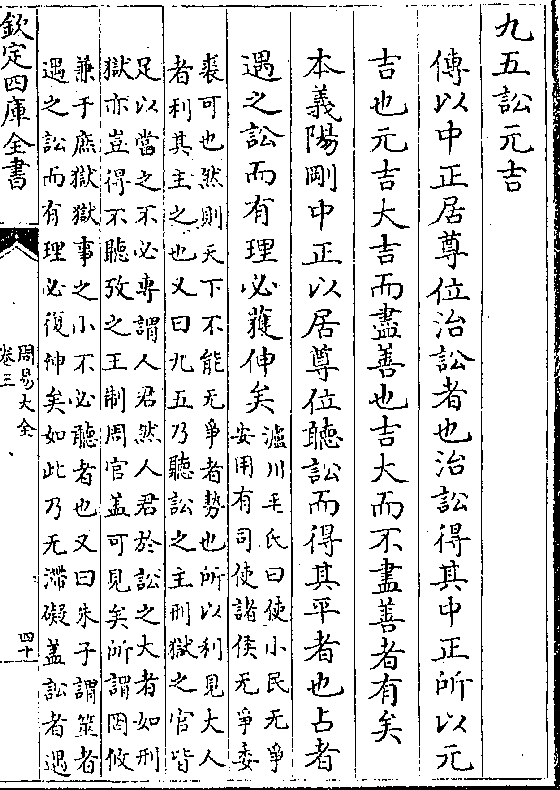 九五訟元吉
傳以中正居尊位治訟者也治訟得其中正所以元
吉也元吉大吉而盡善也吉大而不盡善者有矣
本義陽剛中正以居尊位聽訟而得其平者也占者
遇之訟而有理必獲伸矣
瀘川毛氏曰使小民无爭
安用有司使諸侯无爭委
裘可也然則天下不能无爭者勢也所以利見大人
者利其主之也又曰九五乃聽訟之主刑獄之官皆
足以當之不必專謂人君然人君於訟之大者如刑
獄亦豈得不聽攷之王制周官盖可見矣所謂罔攸
兼于庶獄獄事之小不必聽者也又曰朱子謂筮者
遇之訟而有理必復伸矣如此乃无滯礙盖訟者遇
欽定四庫全書
周易大全
卷三
四十